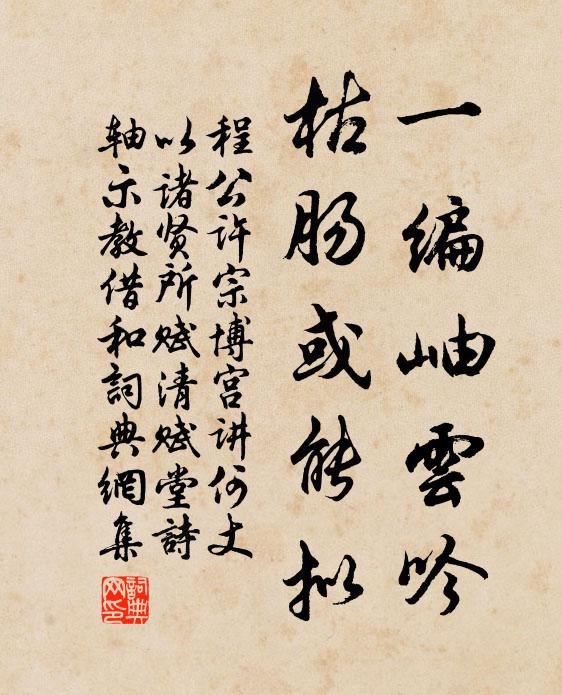 一编岫雲吟
枯肠或能拟
程公许宗博宫讲何丈
以诸贤所赋清赋堂詩
轴示教借和詞典網集
詞典
网印